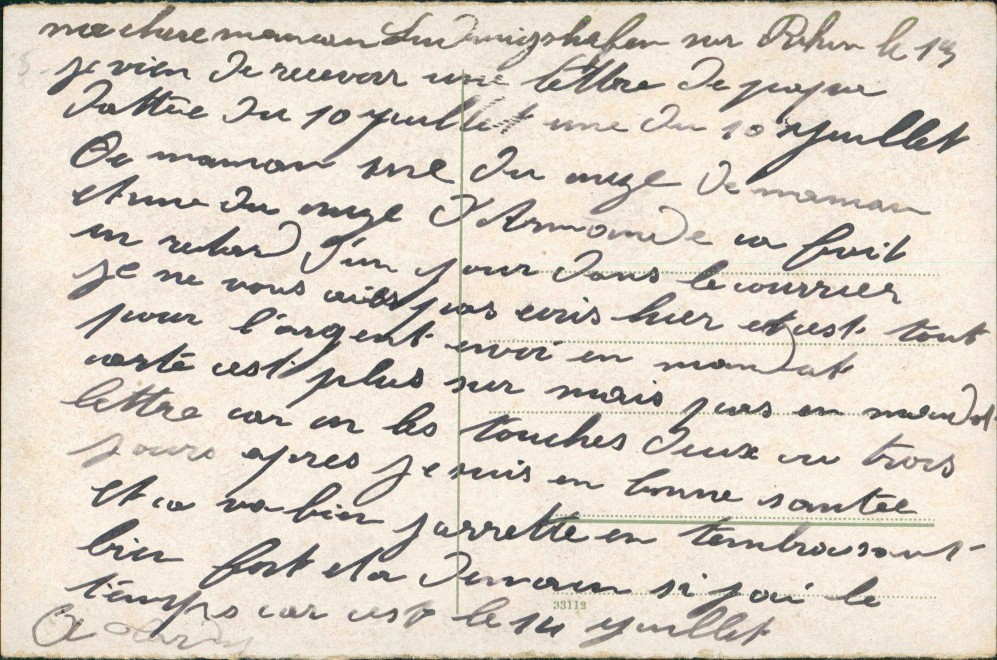 ma chere maman Ludwigshafen sur Rhin le 13
je vien de recevoir une lettre de papa
dattée du 10 yuillet une du 10 yuillet
De maman une du onze de maman
et une du onze d'Armande ca fait
un retard d'un jour dans le courrier
je ne vous ait pas ecris hier et cest tout
pour l'argent envoi en mandat
carte cest plus sur mais pas en mandat
lettre car on les touches deux ou trois
jours apres je suis en bonne santée
et ca va bien jarrette en tembrassant
bien fort et a demain si jai le
temps car cest le 14 yuillet
33112